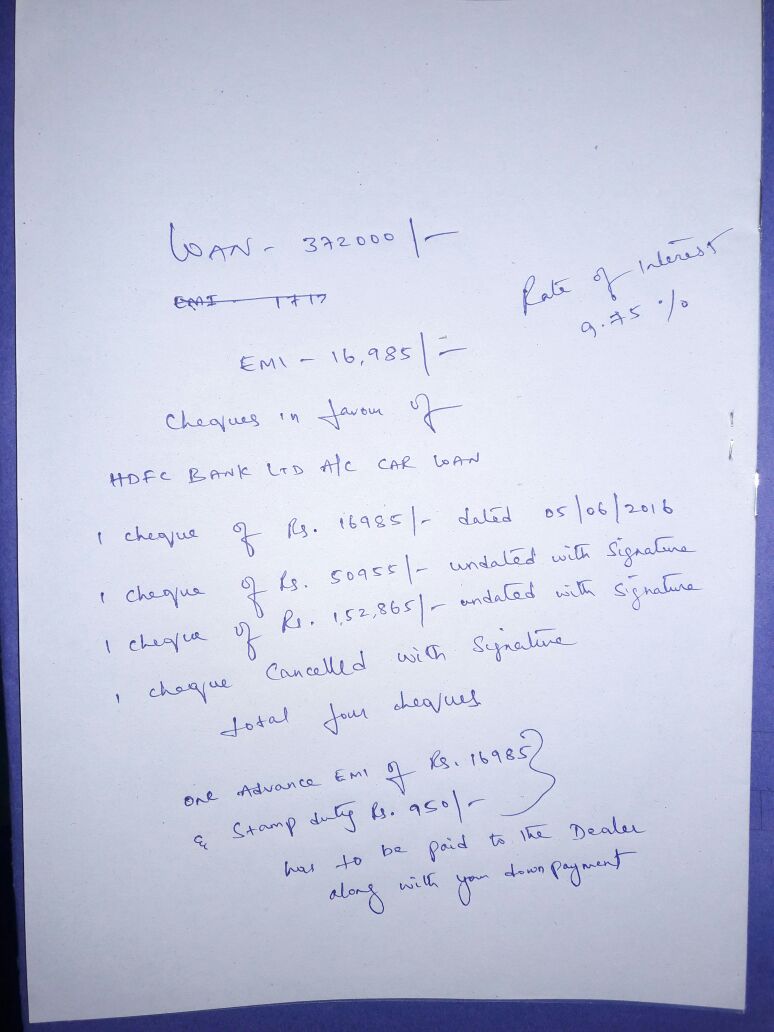 LOAN - 372000/-
EMI - 1717
Rate of Interest
9.75 %
EMI - 16,985/=
Cheques in favour of
HDFC BANK LTD A/C CAR LOAN
1 cheque of Rs. 16985/- dated 05/06/2016
1 cheque of Rs. 50955/- undated with Signature
1 cheque of Rs. 1,52,865/- undated with Signature
1 cheque Cancelled with Signature
total four cheques
one Advance EMI of Rs. 16985
& Stamp duty Rs. 950/-
has to be paid to the Dealer
along with your down payment